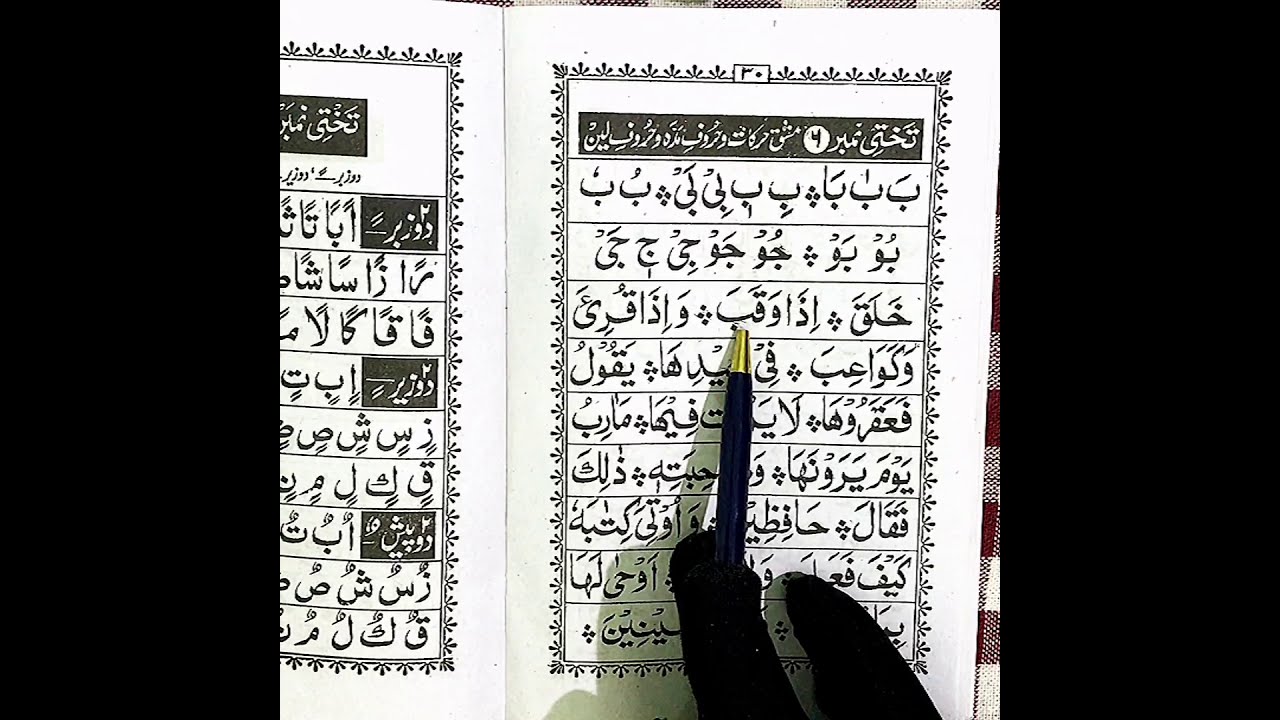 ٣٠
تَخْتِی نمبر ٦ مشق حرکات و حُروفِ مَدّہ و حُروفِ لِین
بَ بٰ بَا ۰ بِ بٖ بِیْ بَیْ ۰ بُ بٗ
بُوْ بَوْ ۰ جُوْ جَوْ جِیْ جٖ جَیْ
خَلَقَ ۰ اِذَا وَقَبَ ۰ وَاِذَا قُرِئَ
وَكَوَاعِبَ ۰ فِیْ هَا ۰ يَقُوْلُ
فَعَقَرُوْهَا ۰ لَا فِيْهَا ۰ مَارِبُ
يَوْمَ يَرَوْنَهَا ۰ ذٰلِكَ
فَقَالَ ۰ حَافِظِيْنَ ۰ وَاُوْتِیَ كِتٰبَهٗ
كَيْفَ فَعَلَ ۰ اَوْحٰى لَهَا
تَخْتِی نمبر
دو زبر ـً، دو زیر
دو زبر ـً اً بًا تًا ثًا
رًا زًا سًا شًا
فًا قًا كًا لًا
دو زیر ـٍ اٍ بٍ تٍ
زٍ سٍ شٍ صٍ
قٍ كٍ لٍ مٍ نٍ
دو پیش ـٌ اٌ بٌ تٌ
زٌ سٌ شٌ صٌ
قٌ كٌ لٌ مٌ